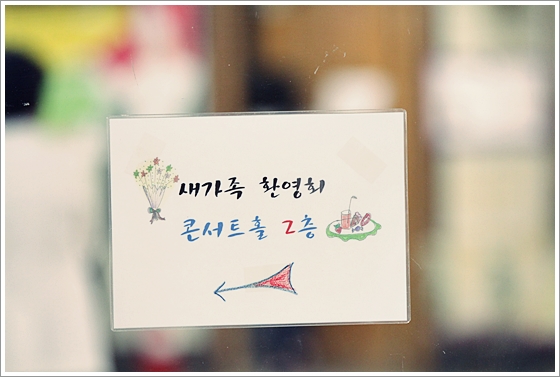 새가족 환영회
콘서트홀 2층